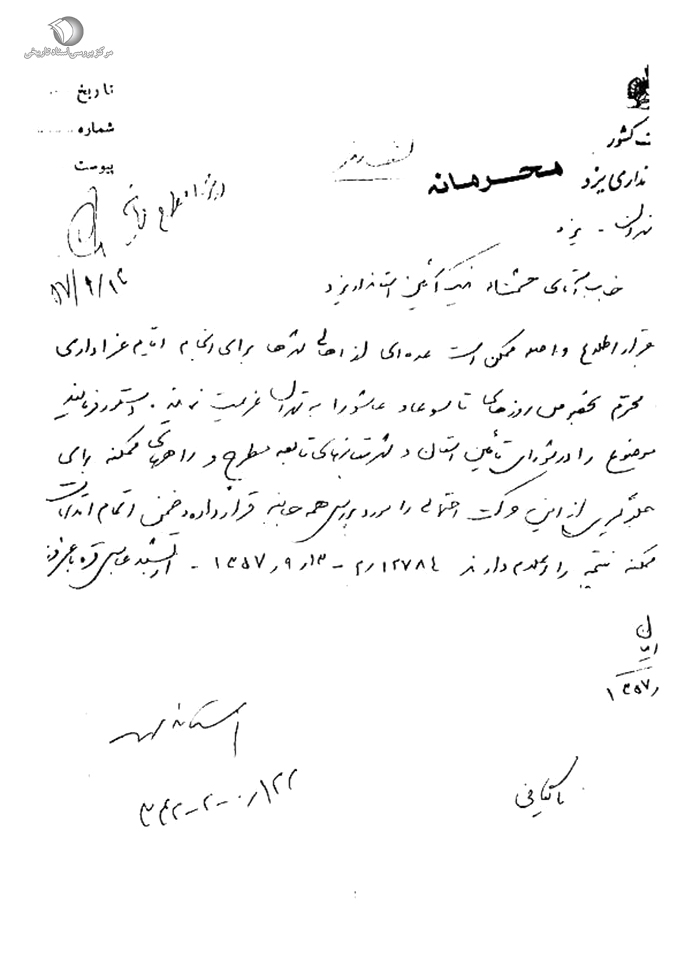 مرکز بررسی اسناد تاریخی
تاریخ ..
شماره ........
پیوست
ت کشور
نداری یزد
محرمانه
کشف رمز
تهران - یزد
۵۷/۹/۱۴
جناب آقای حشمت‌اله نیک‌آئین استاندار یزد
قرار اطلاع واصله ممکن است عده‌ای از اهالی شهرها برای انجام ایام عزاداری
محرم بخصوص روزهای تاسوعا و عاشورا به تهران عزیمت نمایند. دستور فرمائید
موضوع را در شورای تأمین استان و شهرستانهای تابعه مطرح و راههای ممکنه برای
جلوگیری از این حرکت احتمالی را مورد بررسی همه جانبه قرار داده و ضمن انجام اقدامات
ممکنه نتیجه را اعلام دارند ۲٫۱۲۷۸۴ - ۱۳٫۹٫۱۳۵۷ - ارتشبد عباس قره‌باغی
۱۳۵۷
بایگانی
۳۴۲-۲-۰/۱۲۲